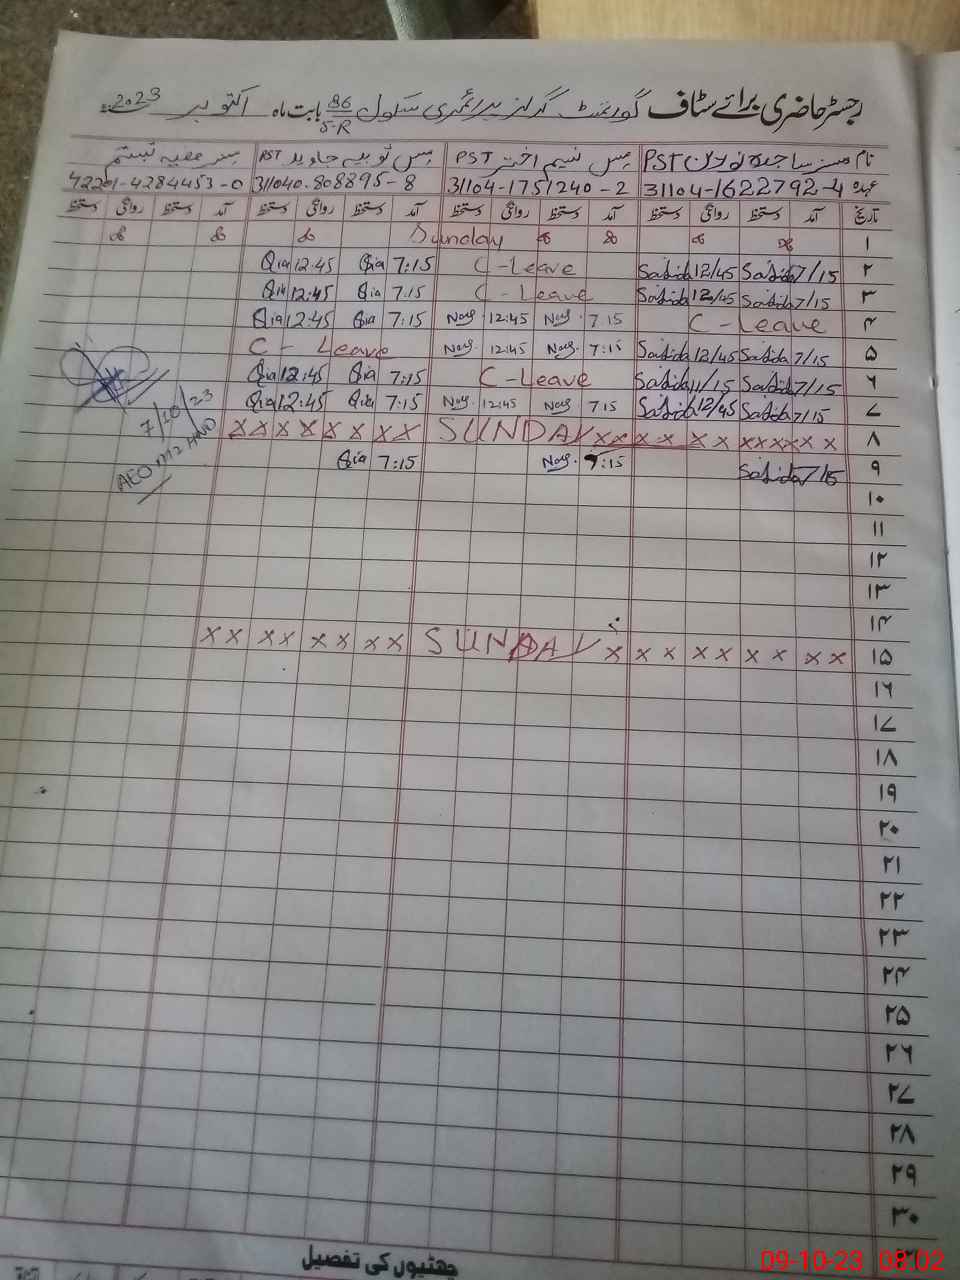 رجسٹر حاضری برائے سٹاف گورنمنٹ گرلز پرائمری سکول 86 5-R بابت ماہ اکتوبر 2023ء
نام مسز ساجدہ نورین PST مس نسیم اختر PST مس ثوبیہ جاوید PST مسز صفیہ تبسم
عہدہ 31104-1622792-4 31104-1751240-2 311040-808895-8 42201-4284453-0
تاریخ آمد دستخط روانگی دستخط آمد دستخط روانگی دستخط آمد دستخط روانگی دستخط آمد دستخط روانگی دستخط
۱ Sunday
۲ 7/15 Sajida 12/45 Sajida C-Leave 7:15 Qia 12:45 Qia
۳ 7/15 Sajida 12/45 Sajida C-Leave 7:15 Qia 12:45 Qia
۴ C-Leave 7:15 Nay. 12:45 Nay. 7:15 Qia 12:45 Qia
۵ 7/15 Sajida 12/45 Sajida 7:15 Nay. 12:45 Nay. C-Leave
۶ 7/15 Sajida 11/15 Sajida C-Leave 7:15 Qia 12:45 Qia
۷ 7/15 Sajida 12/45 Sajida 7:15 Nay. 12:45 Nay. 7:15 Qia 12:45 Qia
7/10/23
۸ x x x x x x x x SUNDAY x x x x x x x x x x x x
۹ 7/15 Sajida 7:15 Nay. 7:15 Qia
AEO
۱۰
۱۱
۱۲
۱۳
۱۴
۱۵ x x x x x x x x SUNDAY x x x x x x x x x
۱۶
۱۷
۱۸
۱۹
۲۰
۲۱
۲۲
۲۳
۲۴
۲۵
۲۶
۲۷
۲۸
۲۹
۳۰
چھٹیوں کی تفصیل
09-10-23 08:02